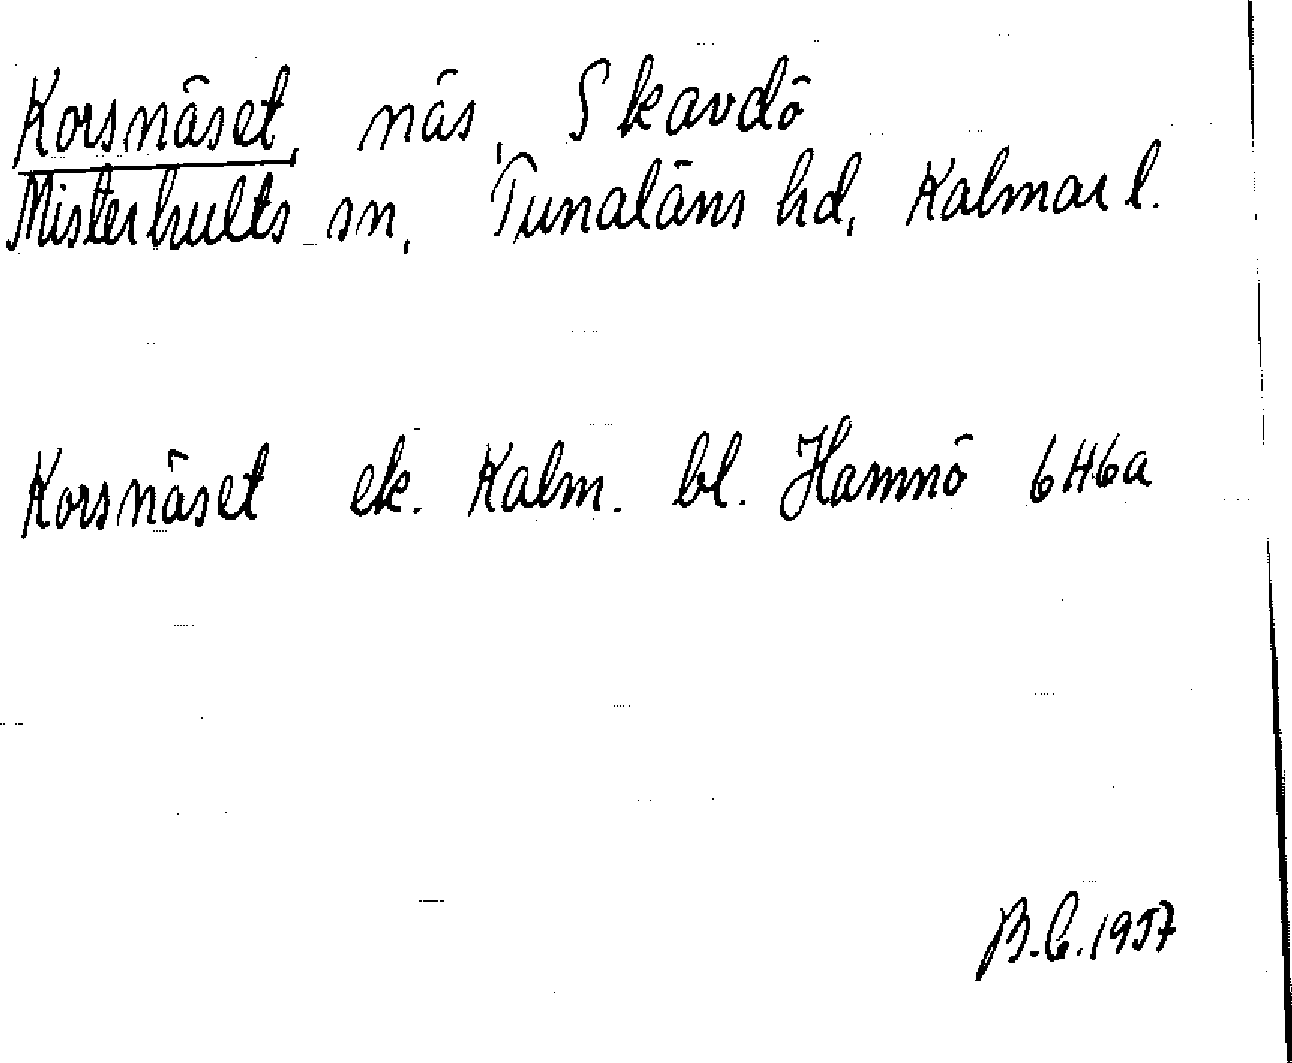 Korsnäset, näs, Skavdö
Misterhults sn, Tunaläns hd, Kalmar l.
Korsnäset ek. Kalm. bl. Hamnö 6H6a
B.C. 1957